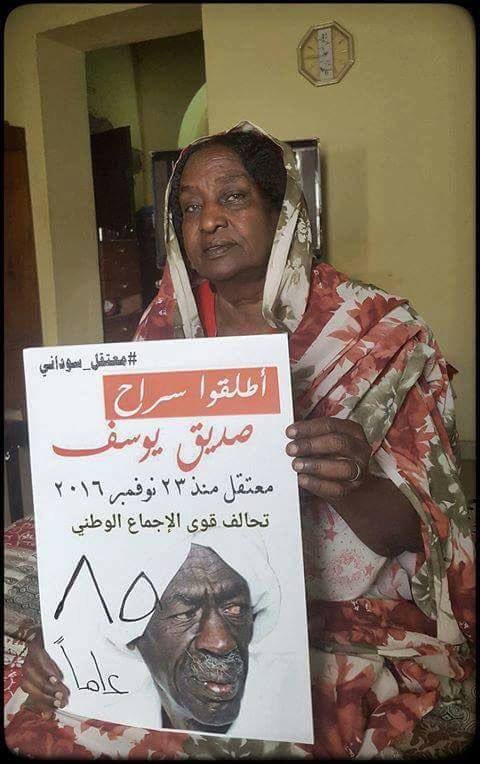 #معتقل_سوداني
أطلقوا سراح
صديق يوسف
معتقل منذ ٢٣ نوفمبر ٢٠١٦
تحالف قوى الإجماع الوطني
٨٥
عاماً